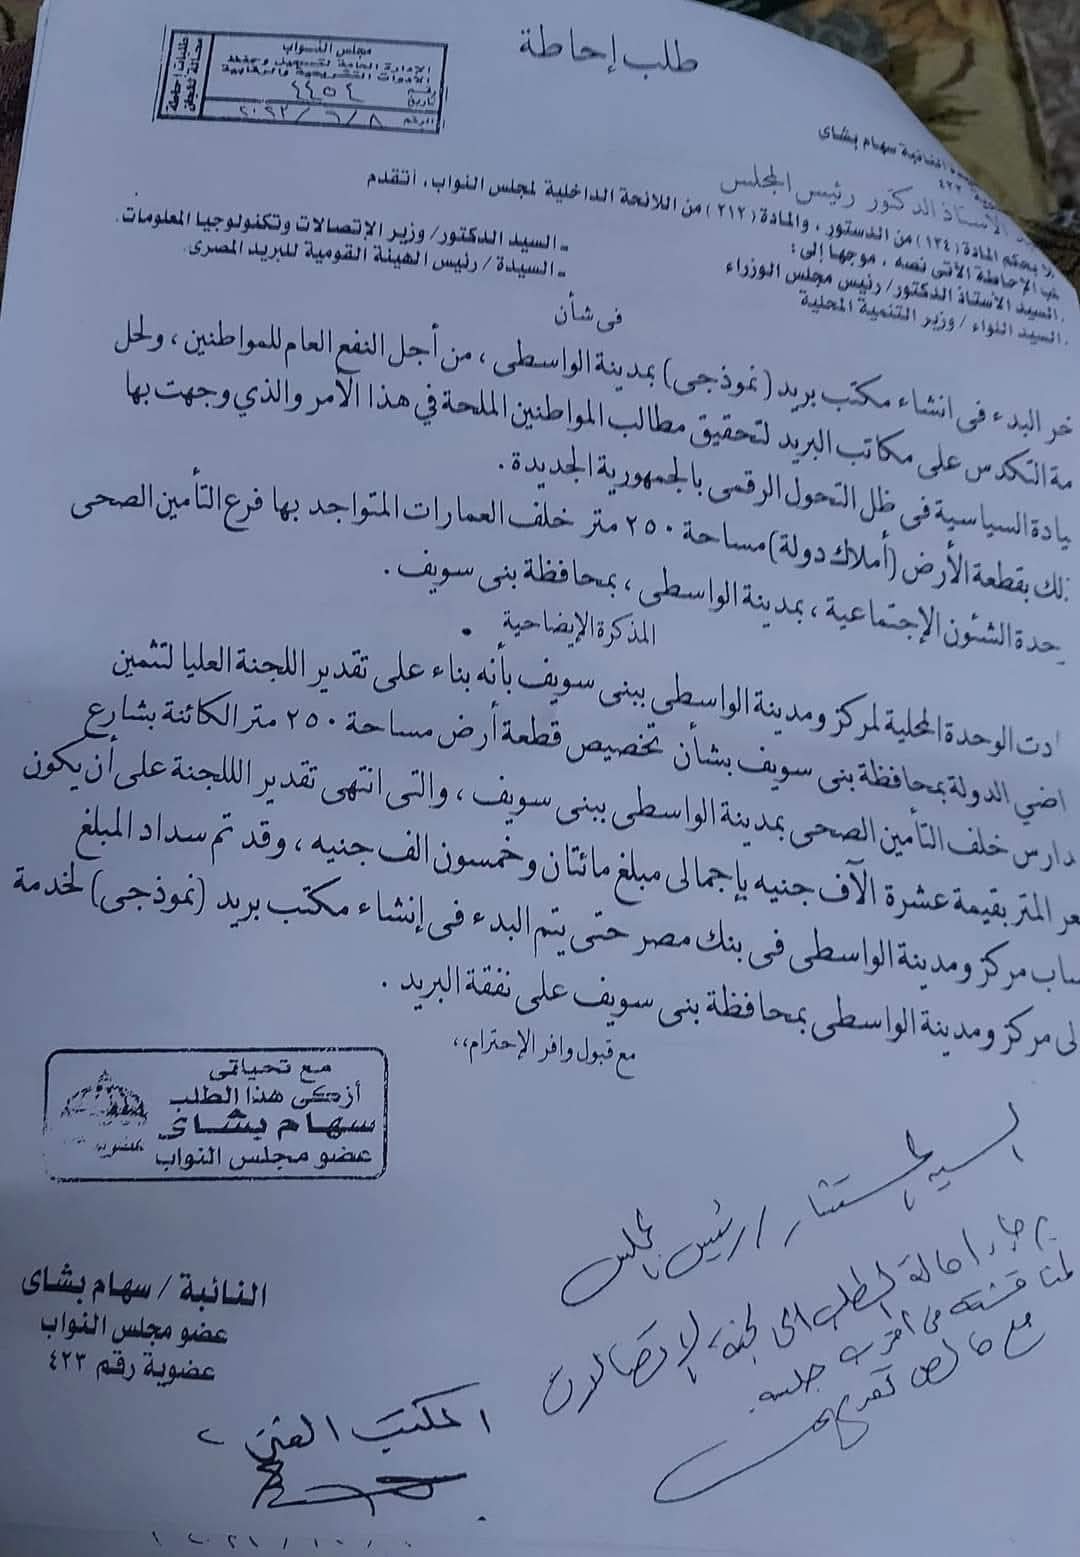 طلب إحاطة
مجلس النواب
الإدارة العامة لتسجيل وحفظ
الأدوات التشريعية والرقابية
٤٤٥٤
تاريخ
الرقم ٢٠٢٢/٦/٨
طلبات إحاطة
محالة للجان
النائبة سهام بشاى
٤٢٣
الأستاذ الدكتور رئيس المجلس
بحكم المادة (١٣٤) من الدستور، والمادة (٢١٢) من اللائحة الداخلية لمجلس النواب، أتقدم
الإحاطة الآتى نصه، موجها إلى:
السيد الأستاذ الدكتور/ رئيس مجلس الوزراء
- السيد الدكتور/ وزير الإتصالات وتكنولوجيا المعلومات.
السيد اللواء / وزير التنمية المحلية
- السيدة / رئيس الهيئة القومية للبريد المصرى.
فى شأن
خر البدء فى انشاء مكتب بريد (نموذجى) بمدينة الواسطى، من أجل النفع العام للمواطنين، ولحل
مة التكدس على مكاتب البريد لتحقيق مطالب المواطنين الملحة في هذا الأمر والذي وجهت بها
يادة السياسية فى ظل التحول الرقمى بالجمهورية الجديدة.
ذلك بقطعة الأرض (أملاك دولة) مساحة ٢٥٠ متر خلف العمارات المتواجد بها فرع التأمين الصحى
حدة الشئون الإجتماعية، بمدينة الواسطى، بمحافظة بنى سويف.
المذكرة الإيضاحية
ادت الوحدة المحلية لمركز ومدينة الواسطى ببنى سويف بأنه بناء على تقدير اللجنة العليا لتثمين
اضي الدولة بمحافظة بنى سويف بشأن تخصيص قطعة أرض مساحة ٢٥٠ متر الكائنة بشارع
دارس خلف التأمين الصحى بمدينة الواسطى ببنى سويف، والتى انتهى تقدير الللجنة على أن يكون
عر المتر بقيمة عشرة الآف جنيه بإجمالى مبلغ مائتان وخمسون الف جنيه، وقد تم سداد المبلغ
ساب مركز ومدينة الواسطى فى بنك مصر حتى يتم البدء فى إنشاء مكتب بريد (نموذجى) لخدمة
لى مركز ومدينة الواسطى بمحافظة بنى سويف على نفقة البريد.
مع قبول وافر الإحترام،،
مع تحياتى
أزكى هذا الطلب
سهام بشاى
عضو مجلس النواب
السيد المستشار / رئيس المجلس
برجاء احالة الطلب الى لجنة الاتصالات
لمناقشته فى اقرب جلسه
مع خالص تقديرى
النائبة / سهام بشاى
عضو مجلس النواب
عضوية رقم ٤٢٣
المكتب الفنى